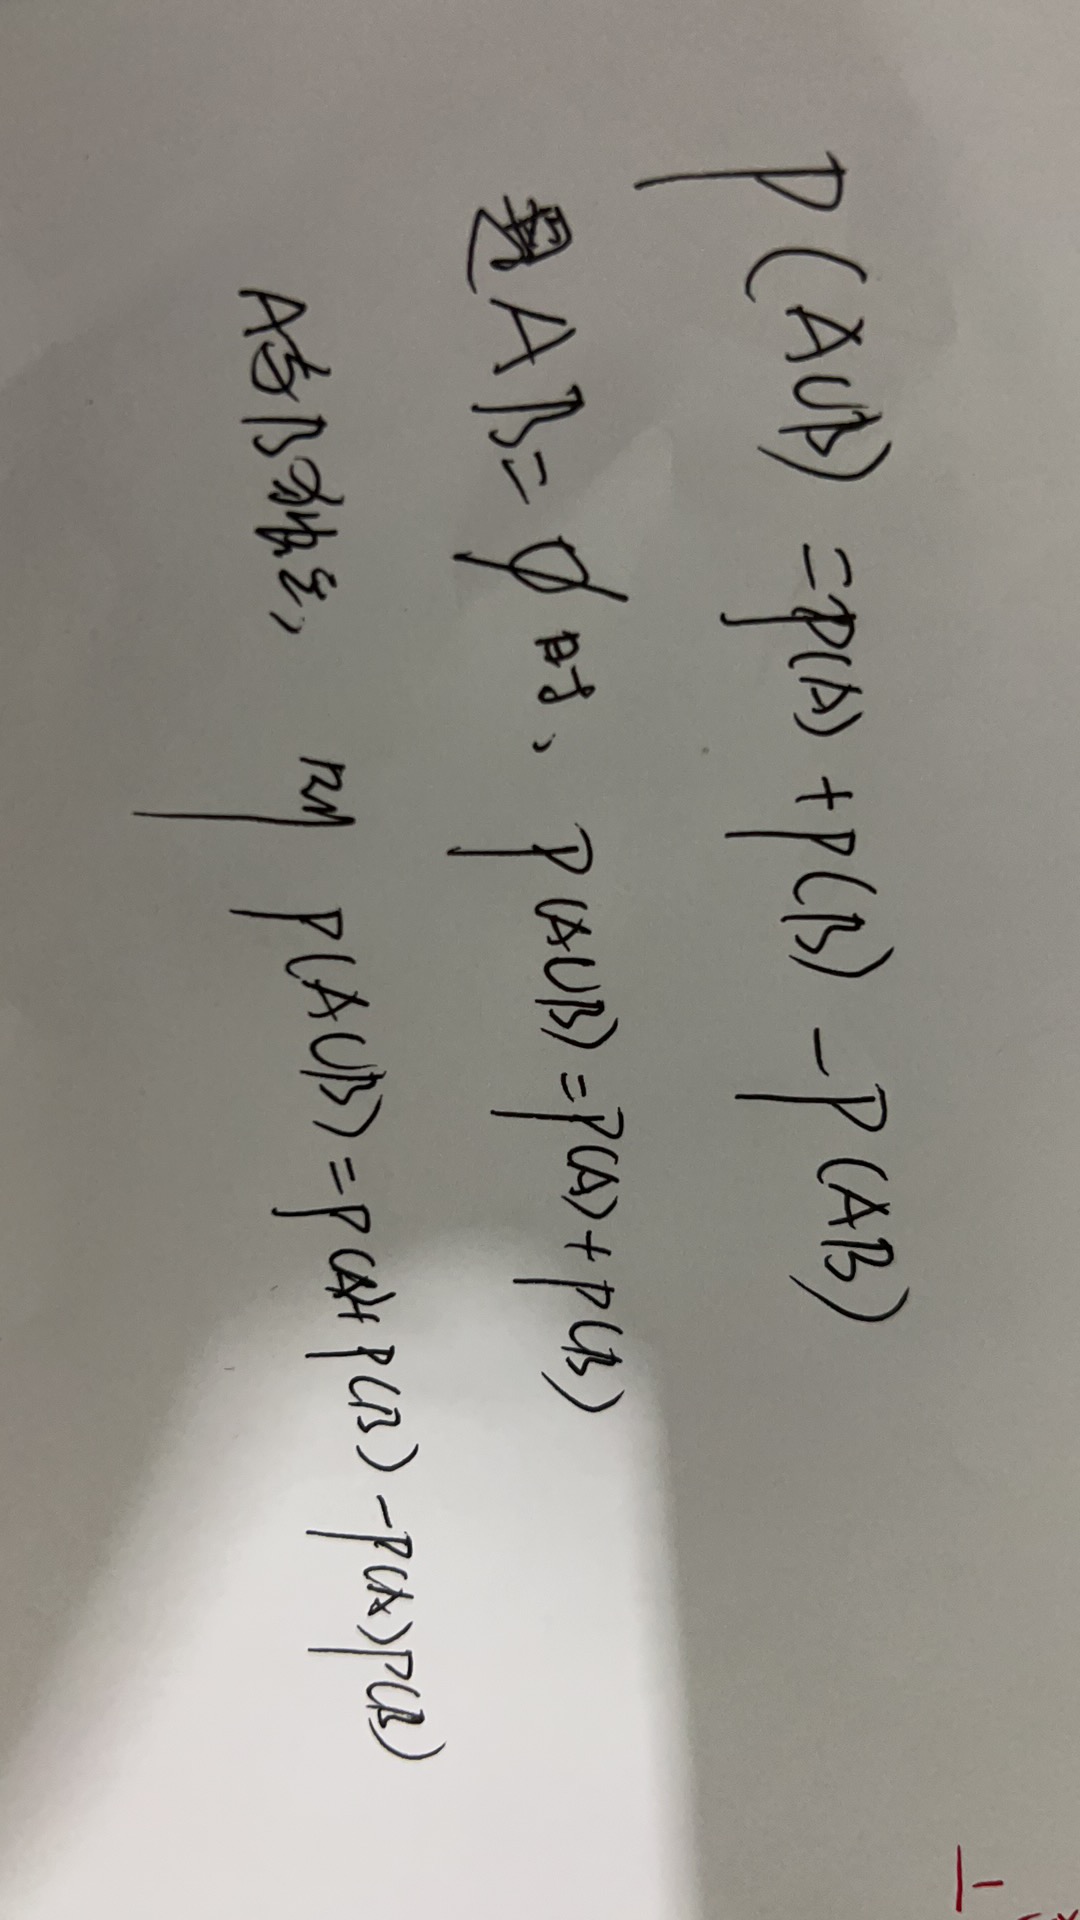 P(A∪B) =P(A)+P(B)-P(AB)
AB=∅时、P(A∪B)=P(A)+P(B)
A与B独立、则 P(A∪B)=P(A)+P(B)-P(A)P(B)